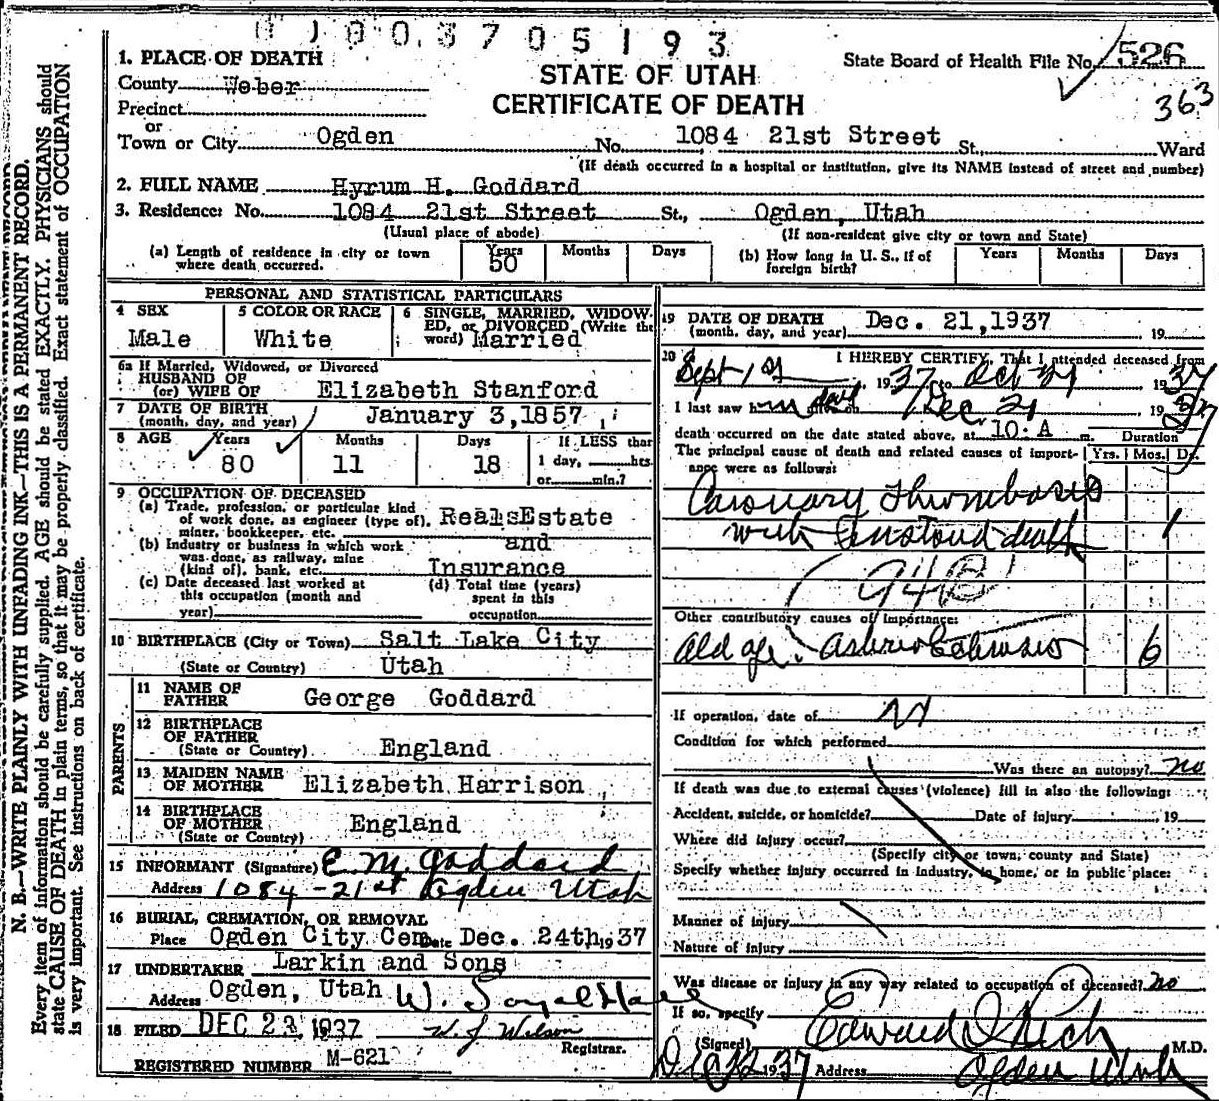 803705193
State Board of Health File No. 526
363
STATE OF UTAH
CERTIFICATE OF DEATH
1. PLACE OF DEATH
County Weber
Precinct
or
Town or City Ogden No. 1084 21st Street St., Ward
(If death occurred in a hospital or institution, give its NAME instead of street and number)
2. FULL NAME Hyrum H. Goddard
3. Residence: No. 1084 21st Street St., Ogden, Utah
(Usual place of abode) (If non-resident give city or town and State)
(a) Length of residence in city or town where death occurred. Years 50 Months Days (b) How long in U. S., if of foreign birth? Years Months Days
PERSONAL AND STATISTICAL PARTICULARS
4 SEX
Male
5 COLOR OR RACE
White
6 SINGLE, MARRIED, WIDOW-
ED, or DIVORCED (Write the
word) Married
6a If Married, Widowed, or Divorced
HUSBAND OF
(or) WIFE OF Elizabeth Stanford
7 DATE OF BIRTH
(month, day, and year) January 3,1857
8 AGE Years Months Days If LESS than
80 11 18 1 day, hrs.
or min.?
9 OCCUPATION OF DECEASED
(a) Trade, profession, or particular kind
of work done, as engineer (type of), Real Estate
miner, bookkeeper, etc.
and
(b) Industry or business in which work
was done, as railway, mine
(kind of), bank, etc. Insurance
(c) Date deceased last worked at
this occupation (month and
year)
(d) Total time (years)
spent in this
occupation
10 BIRTHPLACE (City or Town) Salt Lake City
(State or Country) Utah
PARENTS
11 NAME OF
FATHER George Goddard
12 BIRTHPLACE
OF FATHER
(State or Country) England
13 MAIDEN NAME
OF MOTHER Elizabeth Harrison
14 BIRTHPLACE
OF MOTHER
(State or Country) England
15 INFORMANT (Signature) E. M. Goddard
Address 1084-21st Ogden Utah
16 BURIAL, CREMATION, OR REMOVAL
Place Ogden City Cem Date Dec. 24th 1937
17 UNDERTAKER Larkin and Sons
Address Ogden, Utah
18 FILED DEC 23 1937 W. J. Wilson
Registrar.
REGISTERED NUMBER M-621
19 DATE OF DEATH
(month, day, and year) Dec. 21,1937 19
20 I HEREBY CERTIFY, That I attended deceased from
Sept 1st, 1937 to Oct 1937
I last saw h Dec 21 1937
death occurred on the date stated above, at 10 A m. Duration
The principal cause of death and related causes of import-
ance were as follows: Yrs. Mos. Ds.
Coronary Thrombosis
with death 1
94B
Other contributory causes of importance:
Old age. 6
If operation, date of
Condition for which performed
Was there an autopsy? no
If death was due to external causes (violence) fill in also the following:
Accident, suicide, or homicide? Date of injury , 19
Where did injury occur?
(Specify city or town, county and State)
Specify whether injury occurred in industry, in home, or in public place:
Manner of injury
Nature of injury
Was disease or injury in any way related to occupation of deceased? no
If so, specify
(Signed) Edward I Rich M.D.
1937 Address Ogden Utah
N. B.—WRITE PLAINLY WITH UNFADING INK—THIS IS A PERMANENT RECORD.
Every item of information should be carefully supplied. AGE should be stated EXACTLY. PHYSICIANS should
state CAUSE OF DEATH in plain terms, so that it may be properly classified. Exact statement of OCCUPATION
is very important. See instructions on back of certificate.